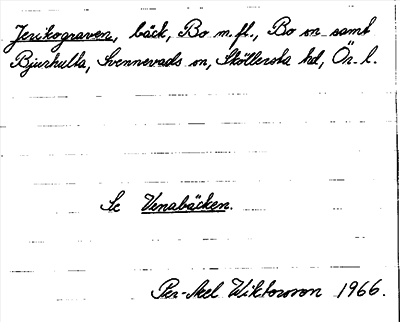 Jerikograven, bäck, Bo m.fl., Bo sn samt
Bjurhulta, Svennevads sn, Sköllersta hd, Ör. l.
Se Venabäcken.
Per-Axel Wiktorsson 1966.